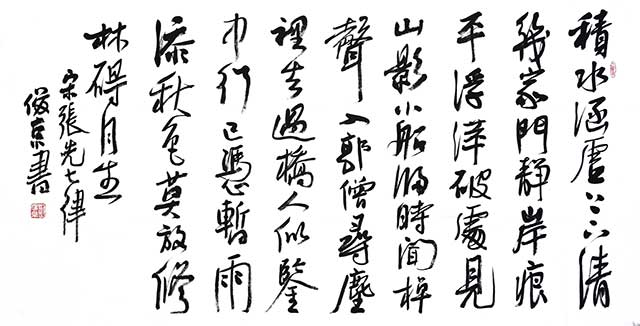 積水涵虛上下清
幾家門靜岸痕
平浮萍破處見
山影小船歸時聞棹
聲入郭僧尋塵
裡去過橋人似鑒
中行已憑暫雨
添秋色莫放修
林碍月生
宋張先七律
俊京書